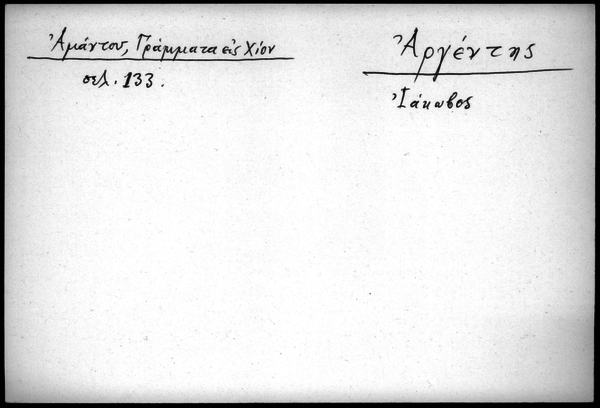 Ἀμάντου, Γράμματα εἰς Χίον
σελ. 133.
Ἀργέντης
Ἰάκωβος